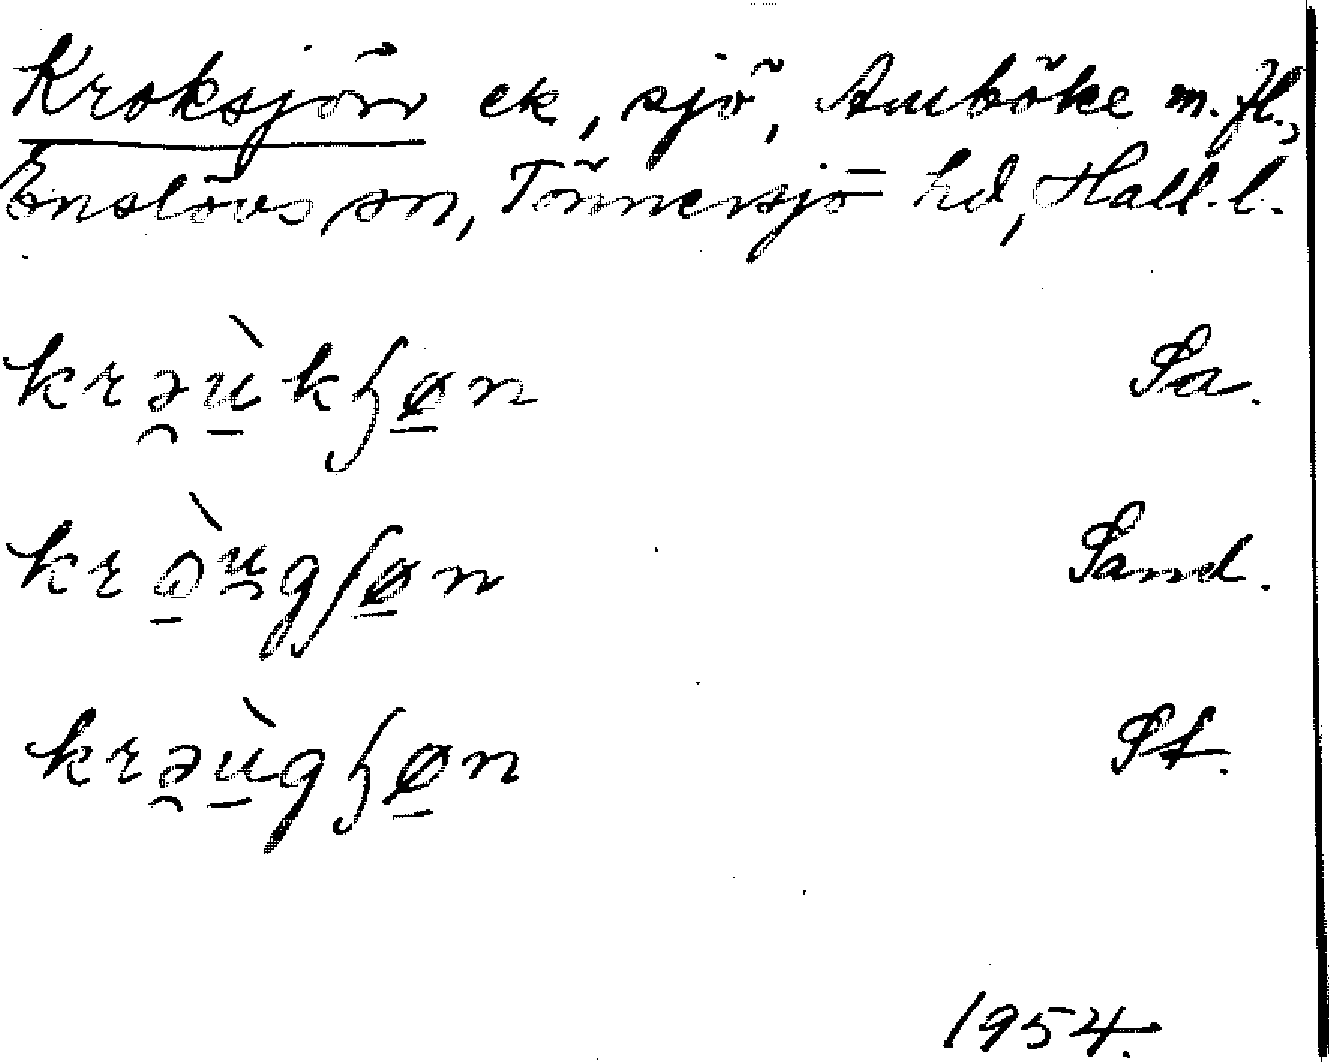 Kroksjön ek, sjö, Amböke m. fl.,
Enslövs sn, Tönnersjö hd, Hall. l.
krə̯ṳ̀kɧøn Sa.
krò̱u̯gʃø̱n Sand.
krə̯ù̱gɧø̱n St.
1954.